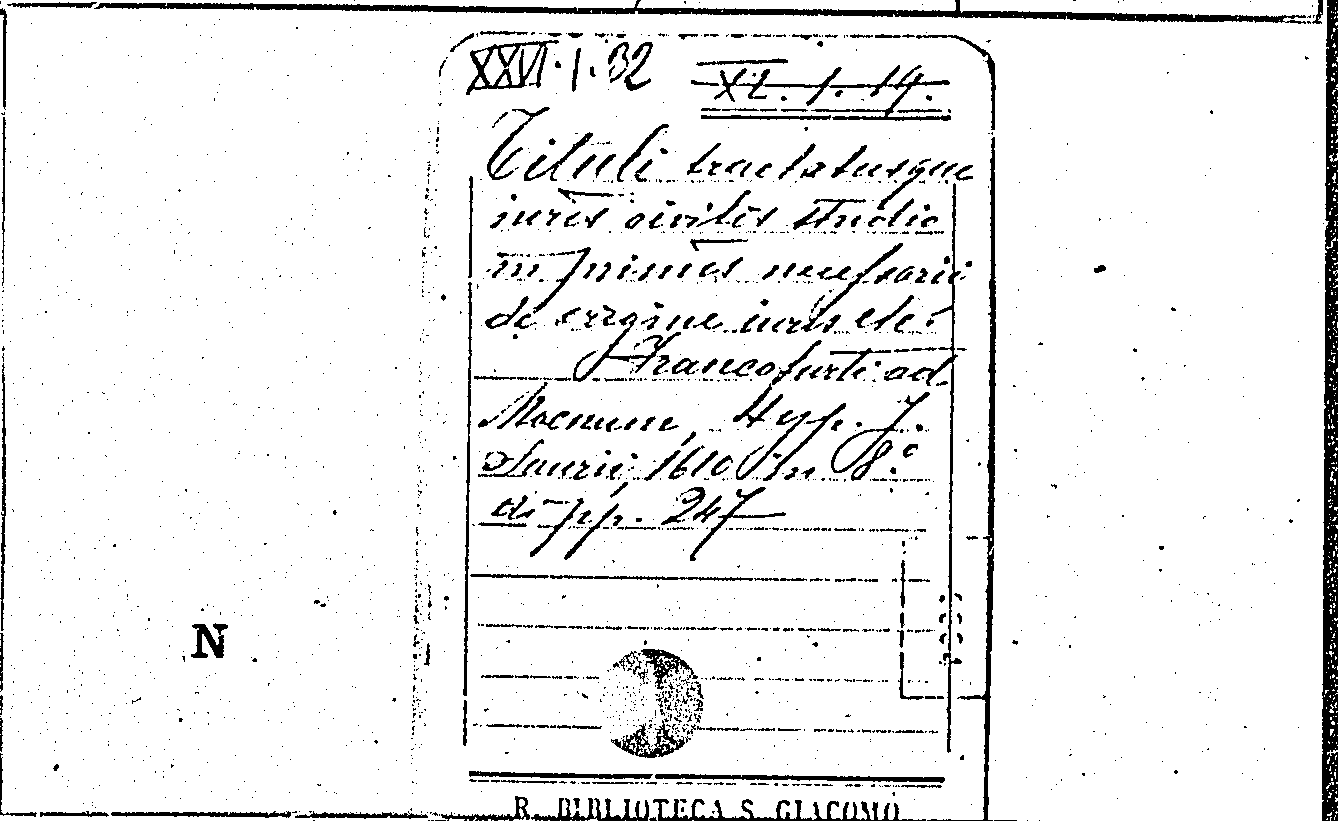 XXVI.1.32 XL. 1. 19.
Tituli tractatusque
iuris civilis studio
in primis necessarii
de origine iuris etc.
Francofurti ad
Moenum, typ. J.
Saurii 1610 in 8.°
di pp. 247
N
R. BIBLIOTECA S. GIACOMO